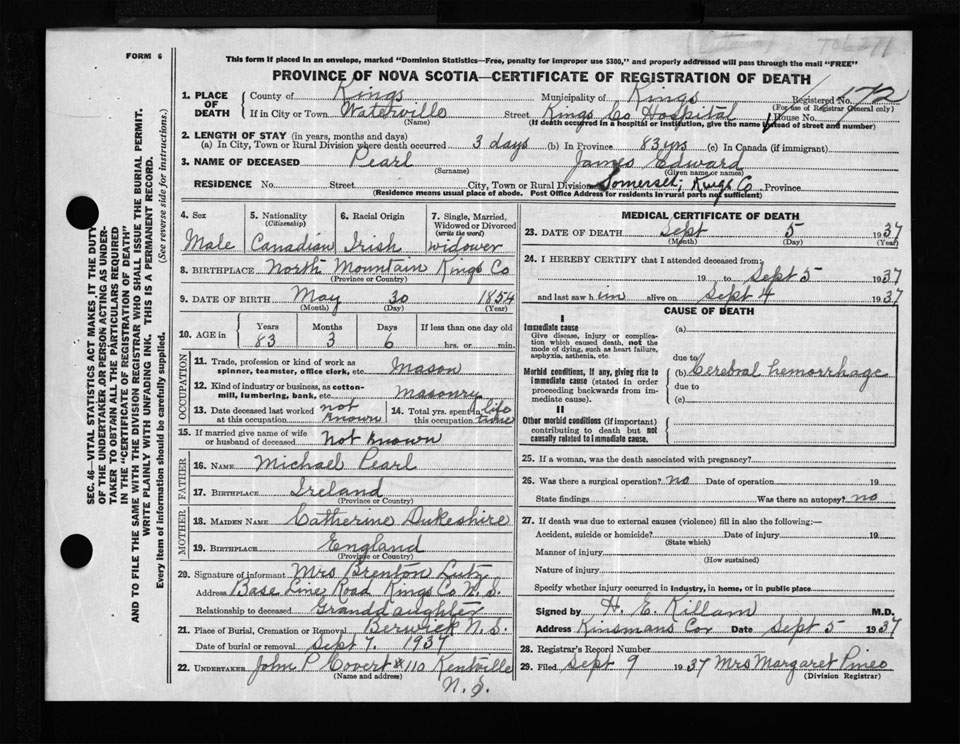 706211
FORM 6
This form if placed in an envelope, marked "Dominion Statistics—Free, penalty for improper use $300," and properly addressed will pass through the mail "FREE"
PROVINCE OF NOVA SCOTIA—CERTIFICATE OF REGISTRATION OF DEATH
SEC. 46—VITAL STATISTICS ACT MAKES IT THE DUTY
OF THE UNDERTAKER OR PERSON ACTING AS UNDER-
TAKER TO OBTAIN ALL THE PARTICULARS REQUIRED
IN THE "CERTIFICATE OF REGISTRATION OF DEATH"
AND TO FILE THE SAME WITH THE DIVISION REGISTRAR WHO SHALL ISSUE THE BURIAL PERMIT.
WRITE PLAINLY WITH UNFADING INK. THIS IS A PERMANENT RECORD.
Every item of information should be carefully supplied. (See reverse side for instructions.)
1. PLACE OF DEATH County of Kings Municipality of Kings Registered No. 172
(For use of Registrar General only)
If in City or Town Waterville Street Kings Co Hospital House No.
(Name) (If death occurred in a hospital or institution, give the name instead of street and number)
2. LENGTH OF STAY (in years, months and days)
(a) In City, Town or Rural Division where death occurred 3 days (b) In Province 83 yrs (c) In Canada (if immigrant)
3. NAME OF DECEASED Pearl James Edward
(Surname) (Given name or names)
RESIDENCE No. Street City, Town or Rural Division Somerset, Kings Co Province
(Residence means usual place of abode. Post Office Address for residents in rural parts not sufficient)
4. Sex Male
5. Nationality (Citizenship) Canadian
6. Racial Origin Irish
7. Single, Married, Widowed or Divorced (write the word) widower
8. BIRTHPLACE North Mountain Kings Co
(Province or Country)
9. DATE OF BIRTH May 30 1854
(Month) (Day) (Year)
10. AGE in Years 83 Months 3 Days 6 If less than one day old hrs. or min.
OCCUPATION
11. Trade, profession or kind of work as spinner, teamster, office clerk, etc. Mason
12. Kind of industry or business, as cotton-mill, lumbering, bank, etc. Masonry
13. Date deceased last worked at this occupation not known
14. Total yrs. spent in this occupation life time
15. If married give name of wife or husband of deceased Not known
FATHER
16. NAME Michael Pearl
17. BIRTHPLACE Ireland
(Province or Country)
MOTHER
18. MAIDEN NAME Catherine Dukeshire
19. BIRTHPLACE England
(Province or Country)
20. Signature of informant Mrs Brenton Lutz
Address Base Line Road Kings Co N.S.
Relationship to deceased Granddaughter
21. Place of Burial, Cremation or Removal Berwick N.S.
Date of burial or removal Sept 7. 1937
22. UNDERTAKER John P Covert #110 Kentville
(Name and address) N.S.
MEDICAL CERTIFICATE OF DEATH
23. DATE OF DEATH Sept 5 1937
(Month) (Day) (Year)
24. I HEREBY CERTIFY that I attended deceased from:
19 to Sept 5 1937
and last saw him alive on Sept 4 1937
CAUSE OF DEATH
I
Immediate cause
Give disease, injury or complication which caused death, not the mode of dying, such as heart failure, asphyxia, asthenia, etc.
Morbid conditions, if any, giving rise to immediate cause (stated in order proceeding backwards from immediate cause).
II
Other morbid conditions (if important) contributing to death but not causally related to immediate cause.
(a)
due to
(b) Cerebral hemorrhage
due to
(c)
25. If a woman, was the death associated with pregnancy?
26. Was there a surgical operation? no Date of operation 19
State findings Was there an autopsy? no
27. If death was due to external causes (violence) fill in also the following:—
Accident, suicide or homicide? Date of injury 19
(State which)
Manner of injury
(How sustained)
Nature of injury
Specify whether injury occurred in industry, in home, or in public place
Signed by H. E. Killam M.D.
Address Kinsmans Cor Date Sept 5 1937
28. Registrar's Record Number
29. Filed Sept 9 1937 Mrs Margaret Pineo
(Division Registrar)